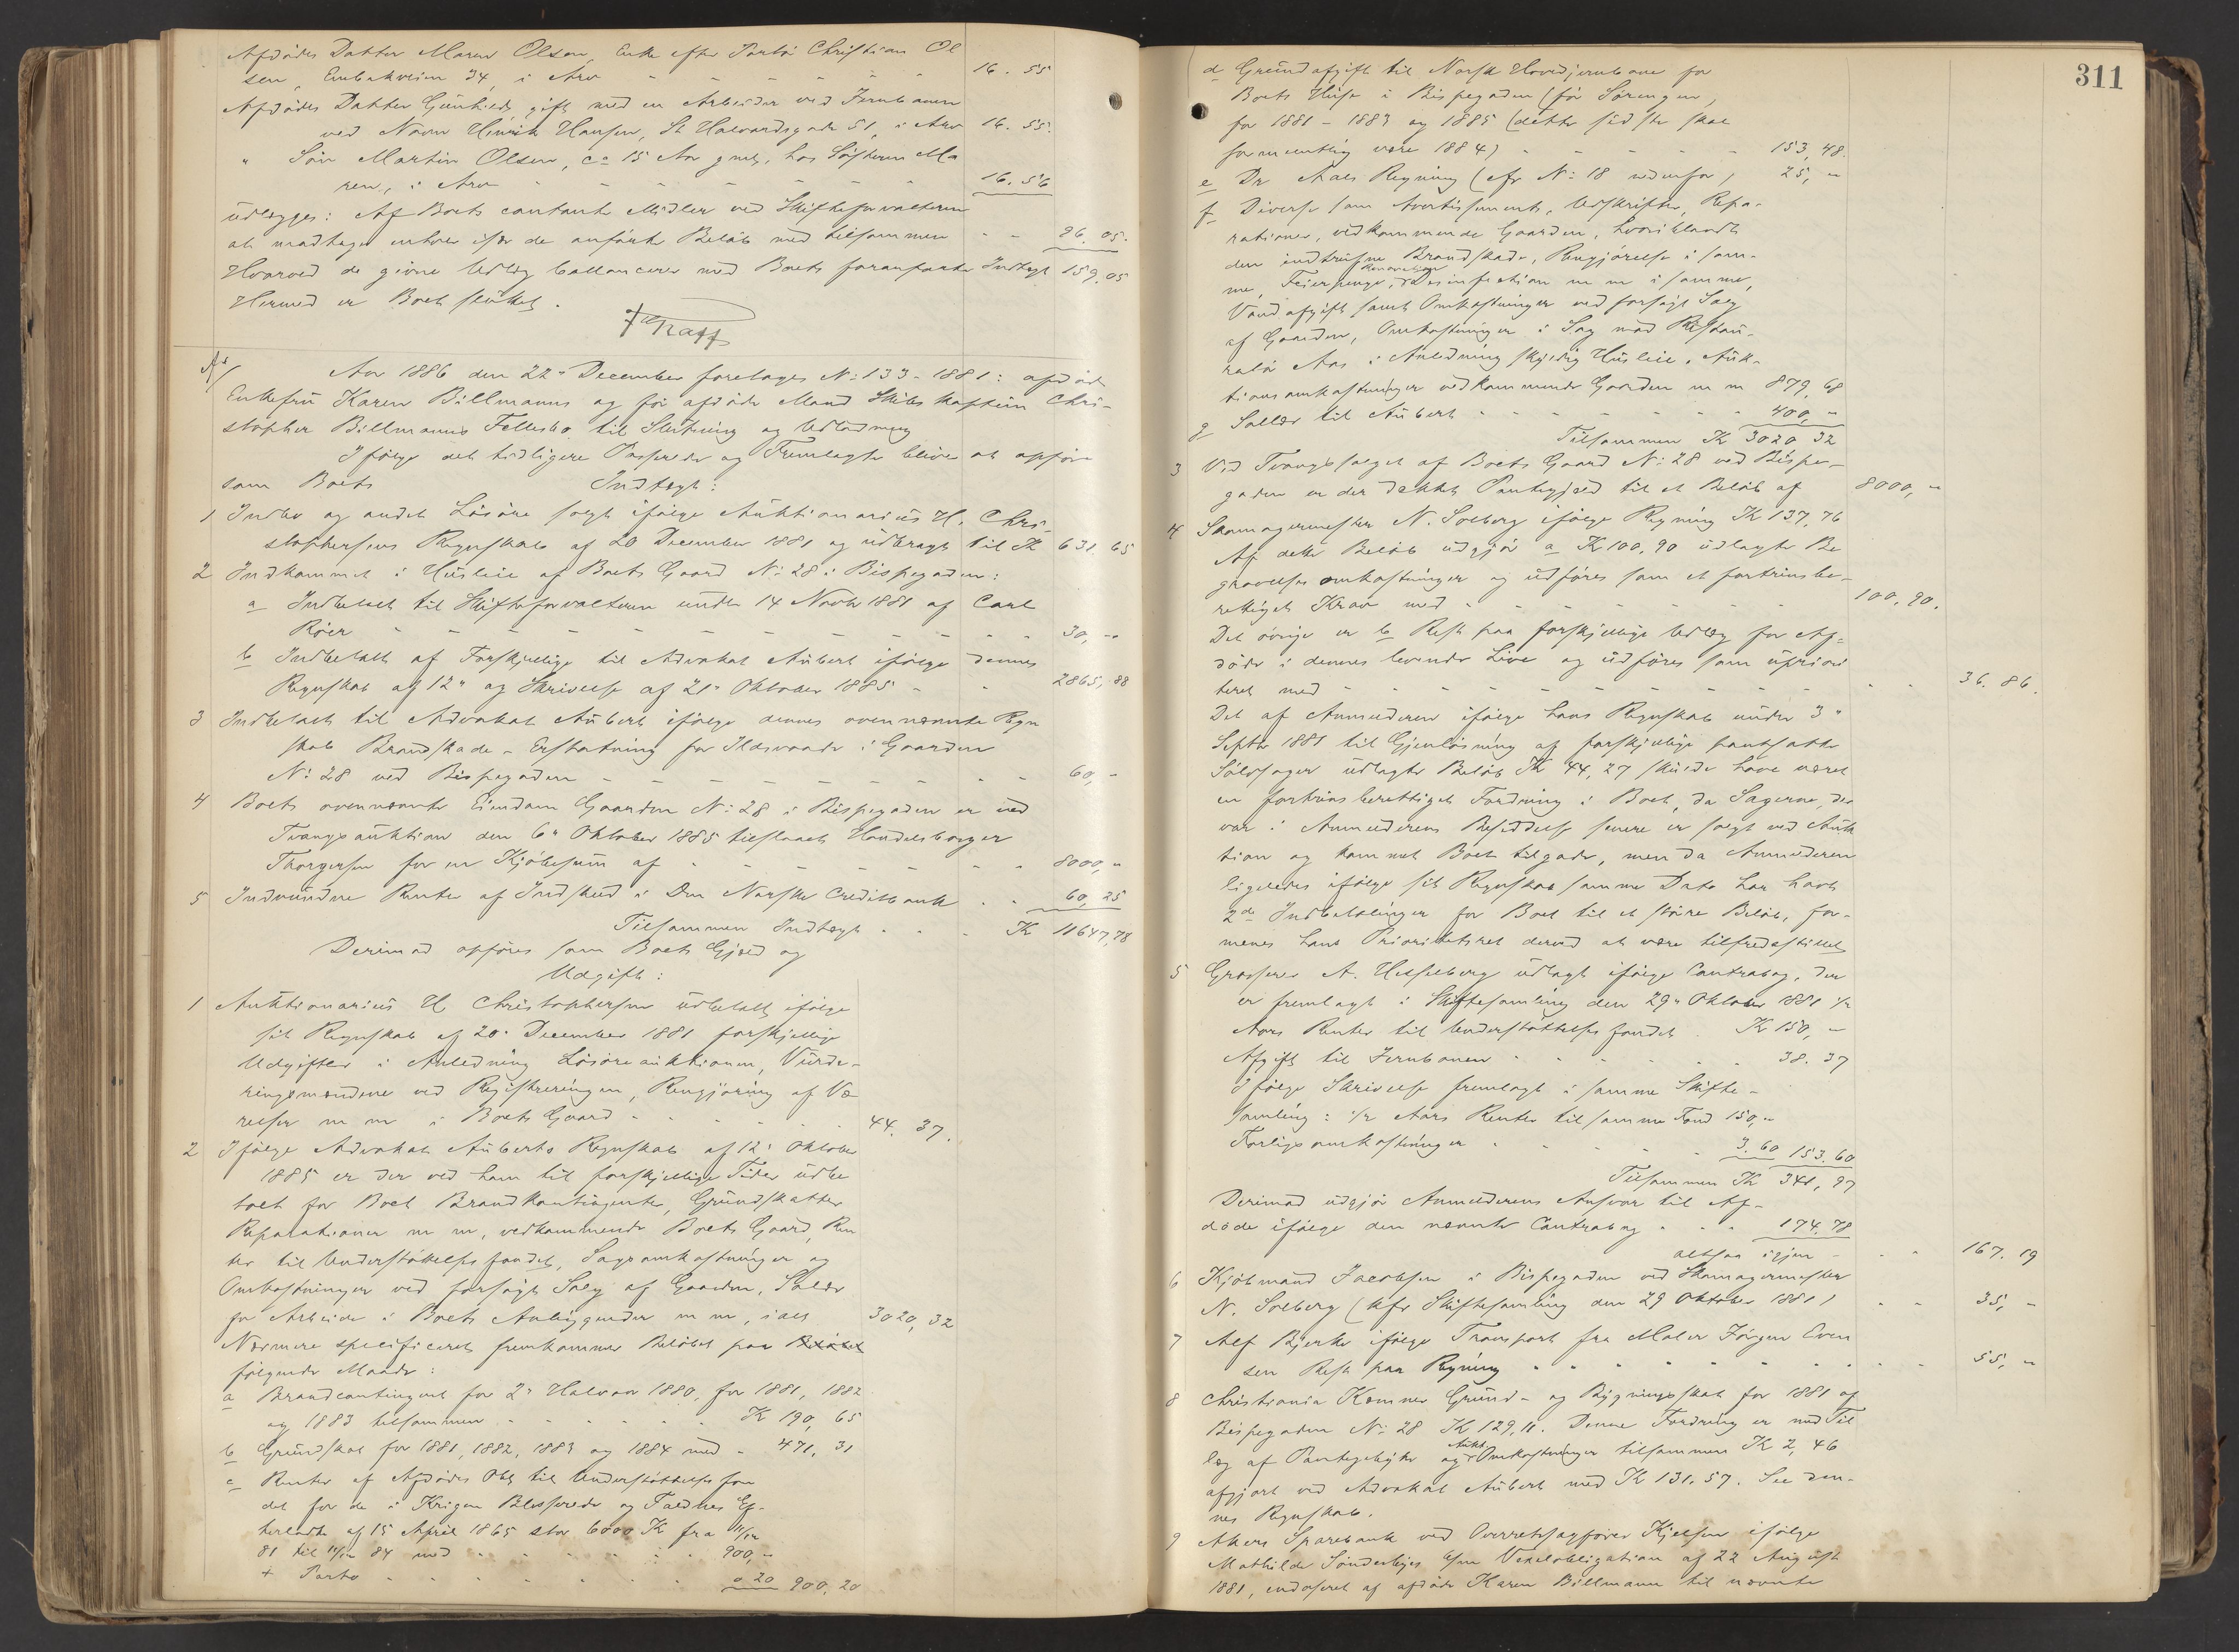 Afdødes Datter Maren Olsen, Enke efter Partør Christian Ol
sen, Enebakveien 34, i Arv - - - - - - 16. 55
Afdødes Datter Gunhild, gift med en Arbeider ved Jernbanen
ved Navn Hinrik Hansen, St Halvardsgade 51, i Arv 16. 55.
" Søn Martin Olsen, ca 15 Aar gml, hos Søsteren Ma
ren, i Arv - - - - - - - 16. 56
udlægges: Af Boets contante Midler ved Skifteforvalteren
at modtage enhver især de anførte Beløb med tilsammen - - 96. 05.
Hvorved de givne Udlæg ballancerer med Boets foranførte Indtægt 159. 05
Hermed er Boet sluttet.
Aar 1886 den 22" December foretages No 133 - 1881: afdøde
Enkefru Karen Billmanns og før afdøde Mand Skibskaptein Chri-
stopher Billmanns Fellesbo til Slutning og Udlodning
Ifølge det tidligere Passerede og Fremlagte bliver at opføre
som Boets Indtægt:
1 Indbo og andet Løsøre solgt ifølge Auktionarius H. Chri-
stophersens Regnskab af 20 December 1881 og udbragt til K 631. 65
2 Indkommet i Husleie af Boets Gaard No 28 i Bispegaden:
a Indbetalt til Skifteforvalteren under 14 Novbr 1881 af Carl
Röer - - - - - - - - - - 30, "
b Indbetalt af Forskjellige til Advokat Aubert ifølge dennes
Regnskab af 12" og Skrivelse af 21" Oktober 1885 - - 2865, 88
3 Indbetalt til Advokat Aubert ifølge dennes ovennævnte Regn
skab Brandskade-Erstatning for Ildsvaade i Gaarden
No 28 ved Bispegaden - - - - - - - - 60, -
4 Boets ovennævnte Eiendom Gaarden No 28 i Bispegaden er ved
Tvangsauktion den 6" Oktober 1885 tilslaaet Handelsborger
Thorgersen for en Kjøbesum af - - - - - - 8000, "
5 Indvundne Renter af Indskud i Den Norske Creditbank - - 60, 25
Tilsammen Indtægt - - - K 11647,78
Derimod opføres som Boets Gjæld og
Udgift:
1 Auktionarius H. Christophersen udbetalt ifølge
sit Regnskab af 20" December 1881 forskjellige
Udgifter i Anledning Løsøreauktionen, Vurde-
ringsmændene ved Registreringen, Rengjøring af Væ
relser m m i Boets Gaard - - - - - 44. 37.
2 Ifølge Advokat Auberts Regnskab af 12" Oktober
1885 er der ved ham til forskjellige Tider udbe
talt for Boet Brandkontingenter, Grundskatter
Reparationer m m, vedkommende Boets Gaard, Ren
ter til Understøttelsesfondet, Sagsomkostninger og
Omkostninger ved forsøgt Salg af Gaarden, Salær
for Arbeide i Boets Anliggender m m, ialt 3020, 32
Nærmere specificeret fremkommer Beløbet paa Beløbet
følgende Maade:
a Brandcontingent for 2" Halvaar 1880, for 1881, 1882
og 1883 tilsammen - - - - - - K 190, 65
b Grundskat for 1881, 1882, 1883 og 1884 med - 471, 31
c Renter af Afdødes Obl til Understøttelsesfon
det for de i Krigen Blesserede og Faldnes Ef-
terladte af 15 April 1865 stor 6000 K fra 11/12
81 til 11/12 84 med - - - - - 900, -
+ Porto - - - - - - - 0 20 900, 20
311
d Grundafgift til Norsk Hovedjernbane for
Boets Huse i Bispegaden (før Sørengen,
for 1881 - 1883 og 1885 (dette sidste skal
formentlig være 1884) - - - - - 153, 48.
e Dr Aals Regning (cfr No 18 nedenfor) 25, "
f Diverse som Avertissements, Udskrifter, Repa-
rationer, vedkommende Gaarden, hvoriblandt
den indtrufne Brandskade, Rengjørelse i sam-
me, Feierpenge, Renovation, Desinfection m m i samme,
Vandafgift samt Omkostninger ved forsøgt Salg
af Gaarden, Omkostninger i Sag mod Restau-
ratør Aas i Anledning skyldig Husleie, Auk-
tionsomkostninger vedkommende Gaarden m m 879, 68
g Sallær til Aubert - - - - - - - - 400, "
Tilsammen K 3020 32
3 Ved Tvangssalget af Boets Gaard No 28 ved Bispe-
gaden er der dækket Pantegjæld til et Beløb af 8000, "
4 Skomagermester N. Solberg ifølge Regning K 137, 76
Af dette Beløb udgjør a K 100, 90 udlagte Be
gravelsesomkostninger og udføres som et fortrinsbe-
rettiget Krav med - - - - - - - 100. 90.
Det øvrige er b Rest paa forskjellige Udlæg for Af-
døde i dennes levende Live og udføres som upriori
teret med - - - - - - - - - - - 36. 86.
Det af Anmelderen ifølge hans Regnskab under 3"
Septbr 1881 til Gjenløsning af forskjellige pantsatte
Sølvsager udlagte Beløb K 44, 27 skulde have været
en fortrinsberettiget Fordring i Boet, da Sagerne, der
var i Anmelderens Besiddelse senere er solgt ved Auk
tion og kommet Boet tilgode, men da Anmelderen
ligeledes ifølge sit Regnskab samme Dato har havt
2de Indbetalinger for Boet til et større Beløb, for-
menes hans Prioritetsret derved at være tilfredsstillet
5 Grosserer A. Hesselberg udlagt ifølge Contrabog, der
er fremlagt i Skiftesamling den 29" Oktober 1881 1/2
Aars Renter til Understøttelsesfondet . K 150, -
Afgift til Jernbanen - - - - - - 38. 37
Ifølge Skrivelse fremlagt i samme Skifte-
samling: 1/2 Aars Renter til samme Fond 150, -
Forligsomkostninger - - - - - 3. 60 153. 60
Tilsammen K 341, 97
Derimod udgjør Anmelderens Ansvar til Af-
døde ifølge den nævnte Contrabog - - - 174. 78
altsaa igjen - - - 167. 19
6 Kjøbmand Jacobsen i Bispegaden ved Skomagermester
N. Solberg (cfr Skiftesamling den 29 Oktober 1881) - - 35, -
7 Alf Bjerke ifølge Transport fra Maler Jörgen Even
sen Rest paa Regning - - - - - - - - - 55, "
8 Christiania Kæmner Grund- og Bygningsskat for 1881 af
Bispegaden No 28 K 129, 11. Denne Fordring er med Til
læg af Pantegebyhr og Aukt. Omkostninger tilsammen K 2, 46
afgjort ved Advokat Aubert med K 131. 57. See den-
nes Regnskab.
9 Akers Sparebank ved Overretssagfører Kjelsen ifølge
Mathilde Sønderbyes Vexelobligation af 22 August
1881, endoseret af afdøde Karen Billmann til nævnte